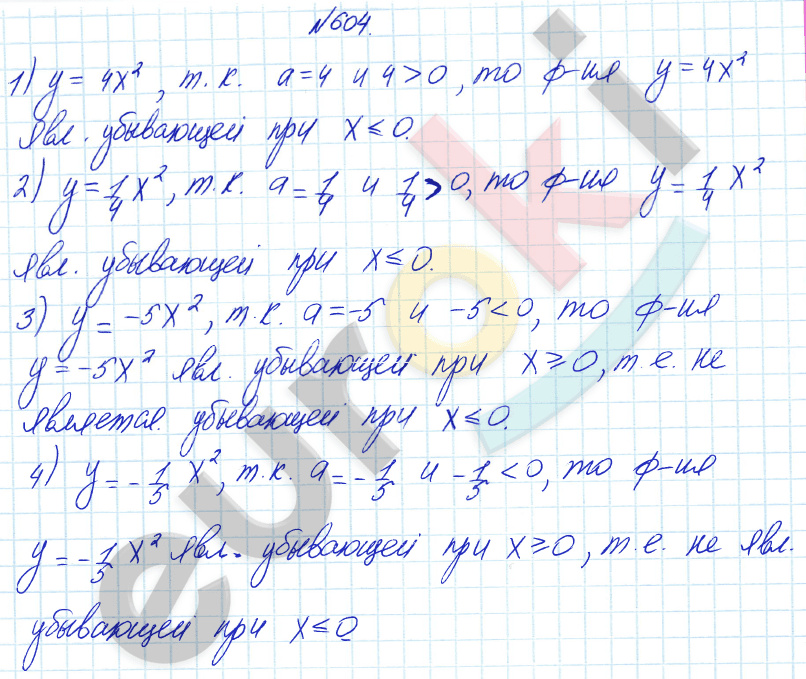 №604.
1) y = 4x², т.к. a=4 и 4>0, то ф-ия y=4x²
явл. убывающей при x ≤ 0.
2) y = 1/4 x², т.к. a = 1/4 и 1/4 > 0, то ф-ия y = 1/4 x²
явл. убывающей при x ≤ 0.
3) y = -5x², т.к. a = -5 и -5 < 0, то ф-ия
y = -5x² явл. убывающей при x ≥ 0, т.е. не
является убывающей при x ≤ 0.
4) y = -1/5 x², т.к. a = -1/5 и -1/5 < 0, то ф-ия
y = -1/5 x² явл. убывающей при x ≥ 0, т.е. не явл.
убывающей при x ≤ 0
euroki